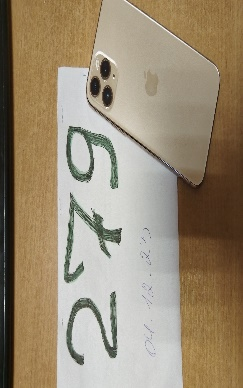 279
04.12.20